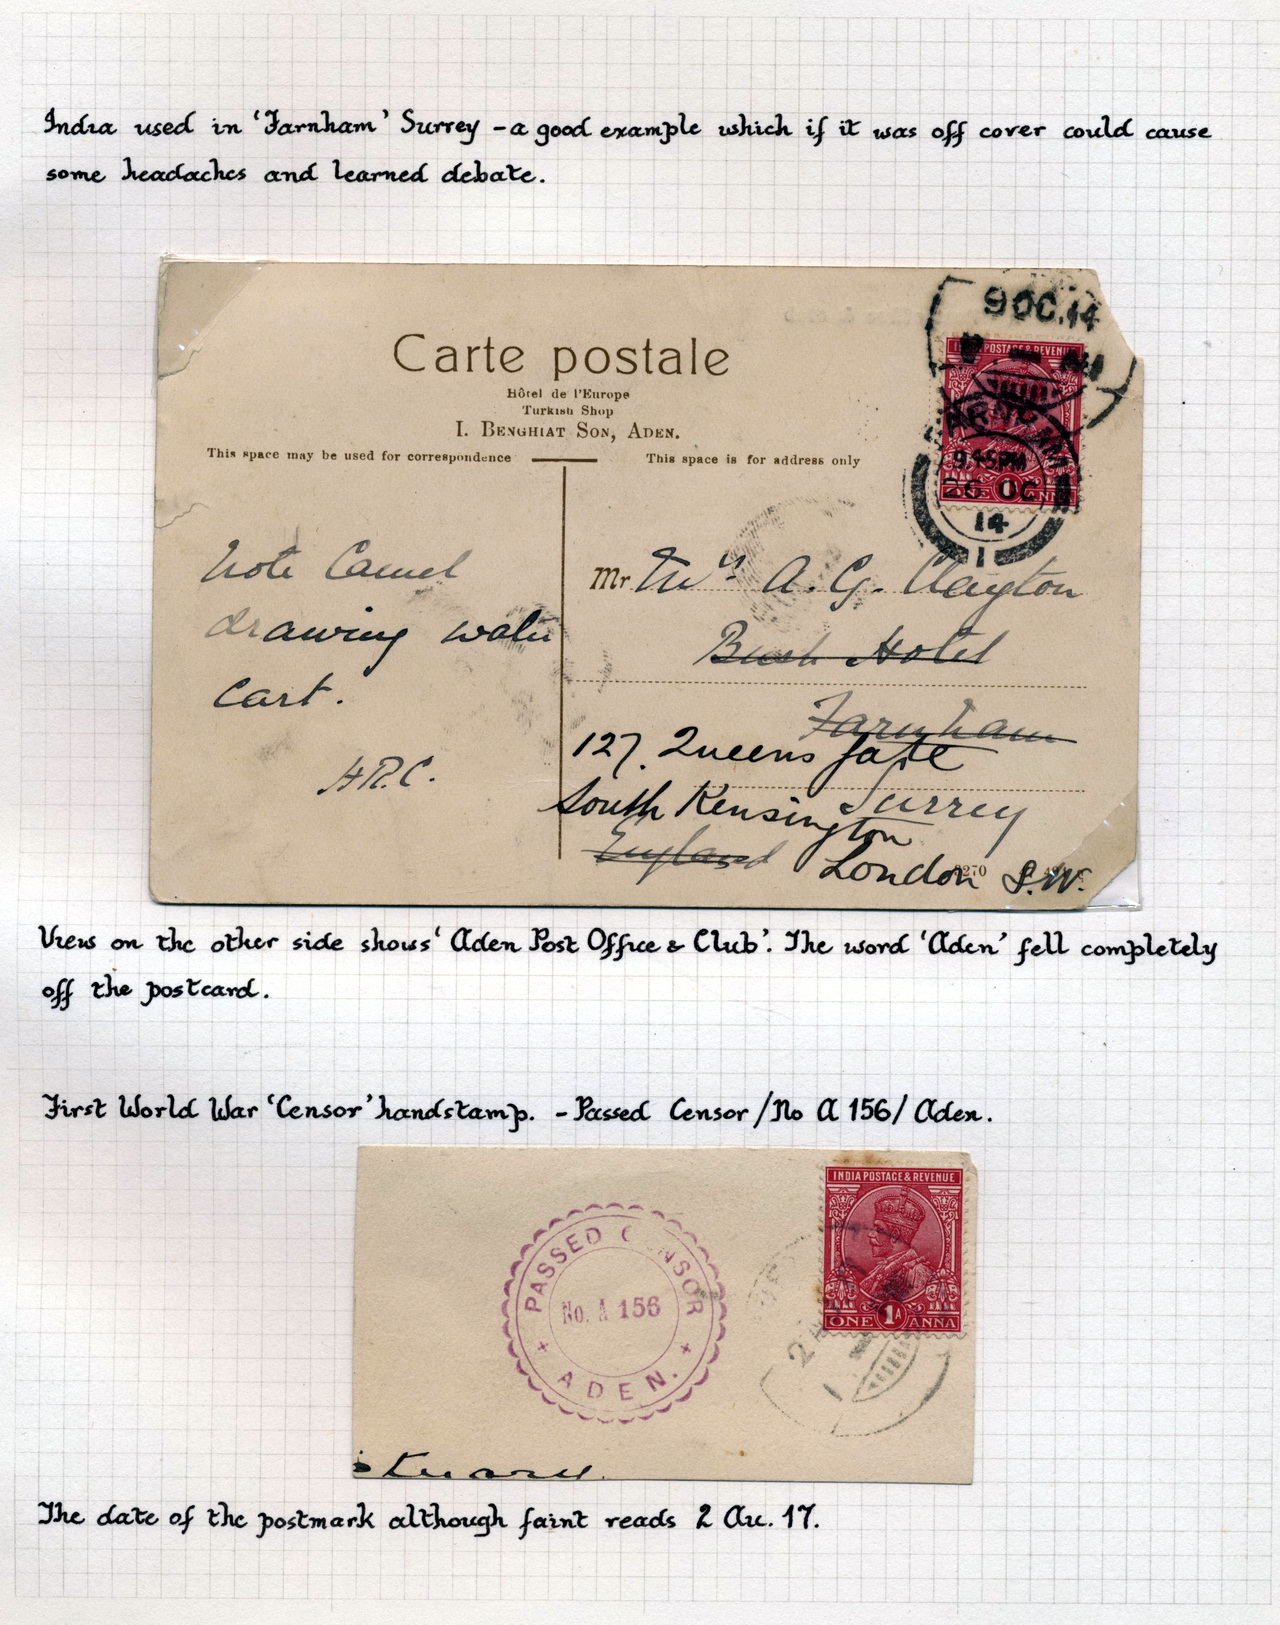 India used in 'Farnham' Surrey – a good example which if it was off cover could cause
some headaches and learned debate.
9 OC. 14
Carte postale
INDIA POSTAGE & REVENUE
Hôtel de l'Europe
Turkish Shop
I. BENGHIAT SON, ADEN.
This space may be used for correspondence
This space is for address only
FARNHAM
9.45PM
26 OC
14
1
Note Camel
drawing water
cart.
H.R.C.
Mr Mrs A. G. Clayton
Bush Hotel
Farnham
127. Queens Gate
Surrey
South Kensington
England
London S.W.
View on the other side shows 'Aden Post Office & Club'. The word 'Aden' fell completely
off the postcard.
First World War 'Censor' handstamp. – Passed Censor/No A 156/Aden.
INDIA POSTAGE & REVENUE
PASSED CENSOR
No. A 156
ADEN.
1A
ONE ANNA
The date of the postmark although faint reads 2 Au. 17.